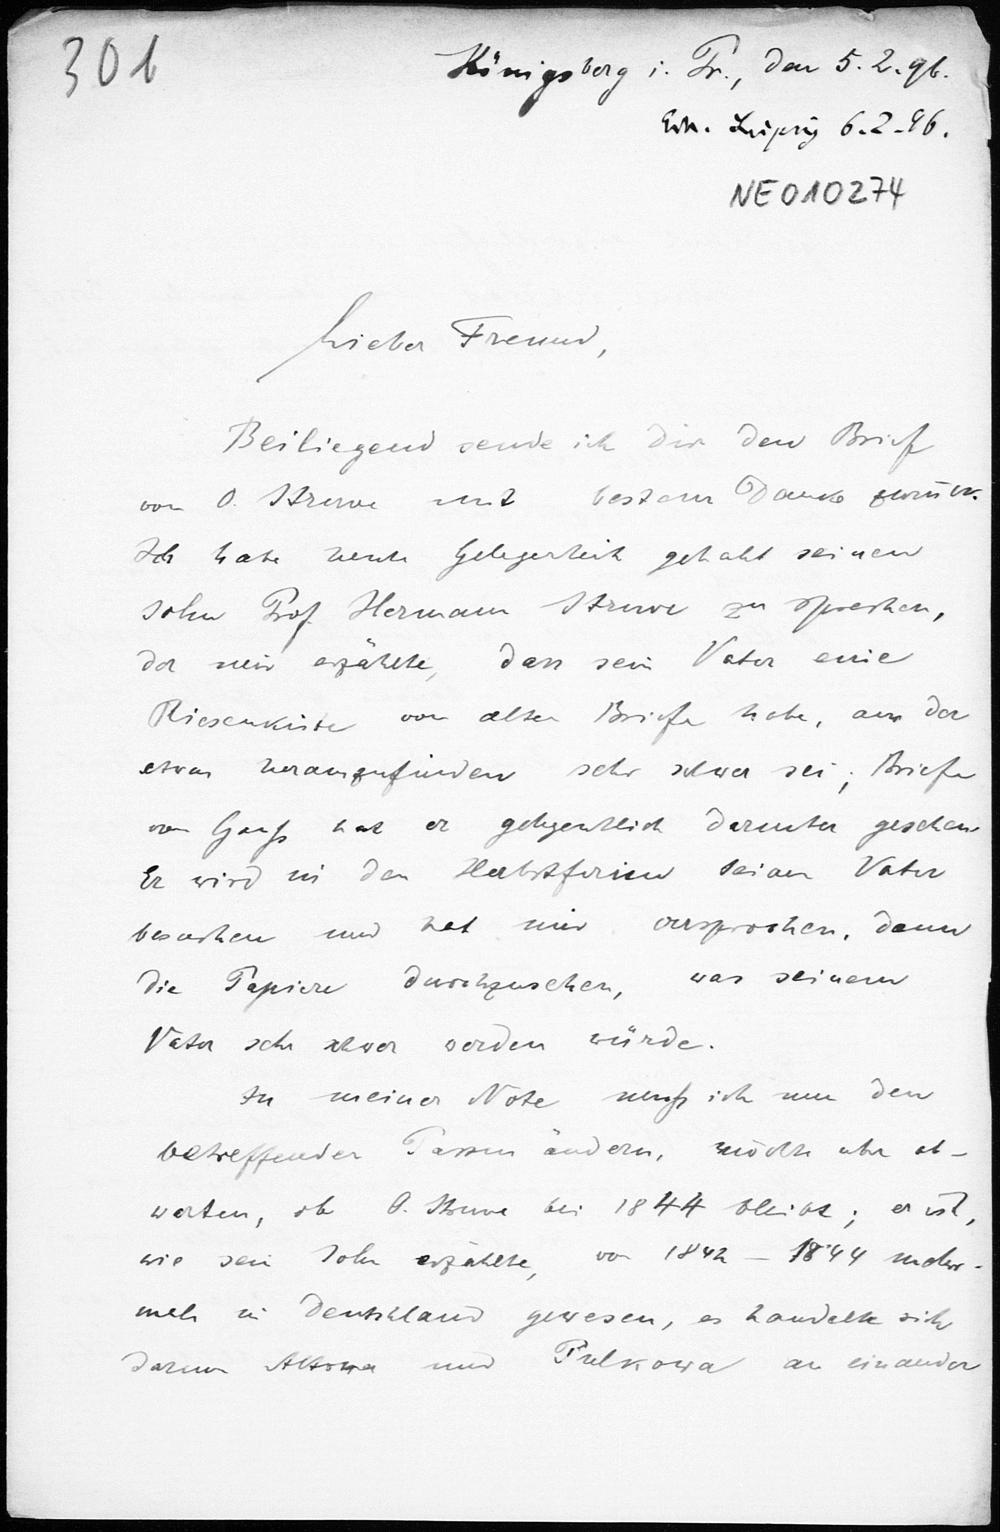 301
Königsberg i. Pr., den 5.2.96.
Erh. Leipzig 6.2.96.
NE010274
Lieber Freund,
Beiliegend sende ich Dir den Brief
von O. Struve mit bestem Dank zurück.
Ich habe heute Gelegenheit gehabt seinen
Sohn Prof. Hermann Struve zu sprechen,
der mir erzählte, dass sein Vater eine
Riesenkiste von alten Briefen habe, aus der
etwas herauszufinden sehr schwer sei; Briefe
von Gauß hat er gelegentlich darunter gesehen.
Er wird in den Herbstferien seinen Vater
besuchen und hat mir versprochen, dann
die Papiere durchzusehen, was seinem
Vater sehr schwer werden würde.
In meiner Note muß ich nun den
betreffenden Passus ändern, möchte aber ab-
warten, ob O. Struve bei 1844 bleibt; er ist,
wie sein Sohn erzählte, von 1842 – 1844 mehr-
mals in Deutschland gewesen, es handelte sich
darum Altona und Pulkowa an einander